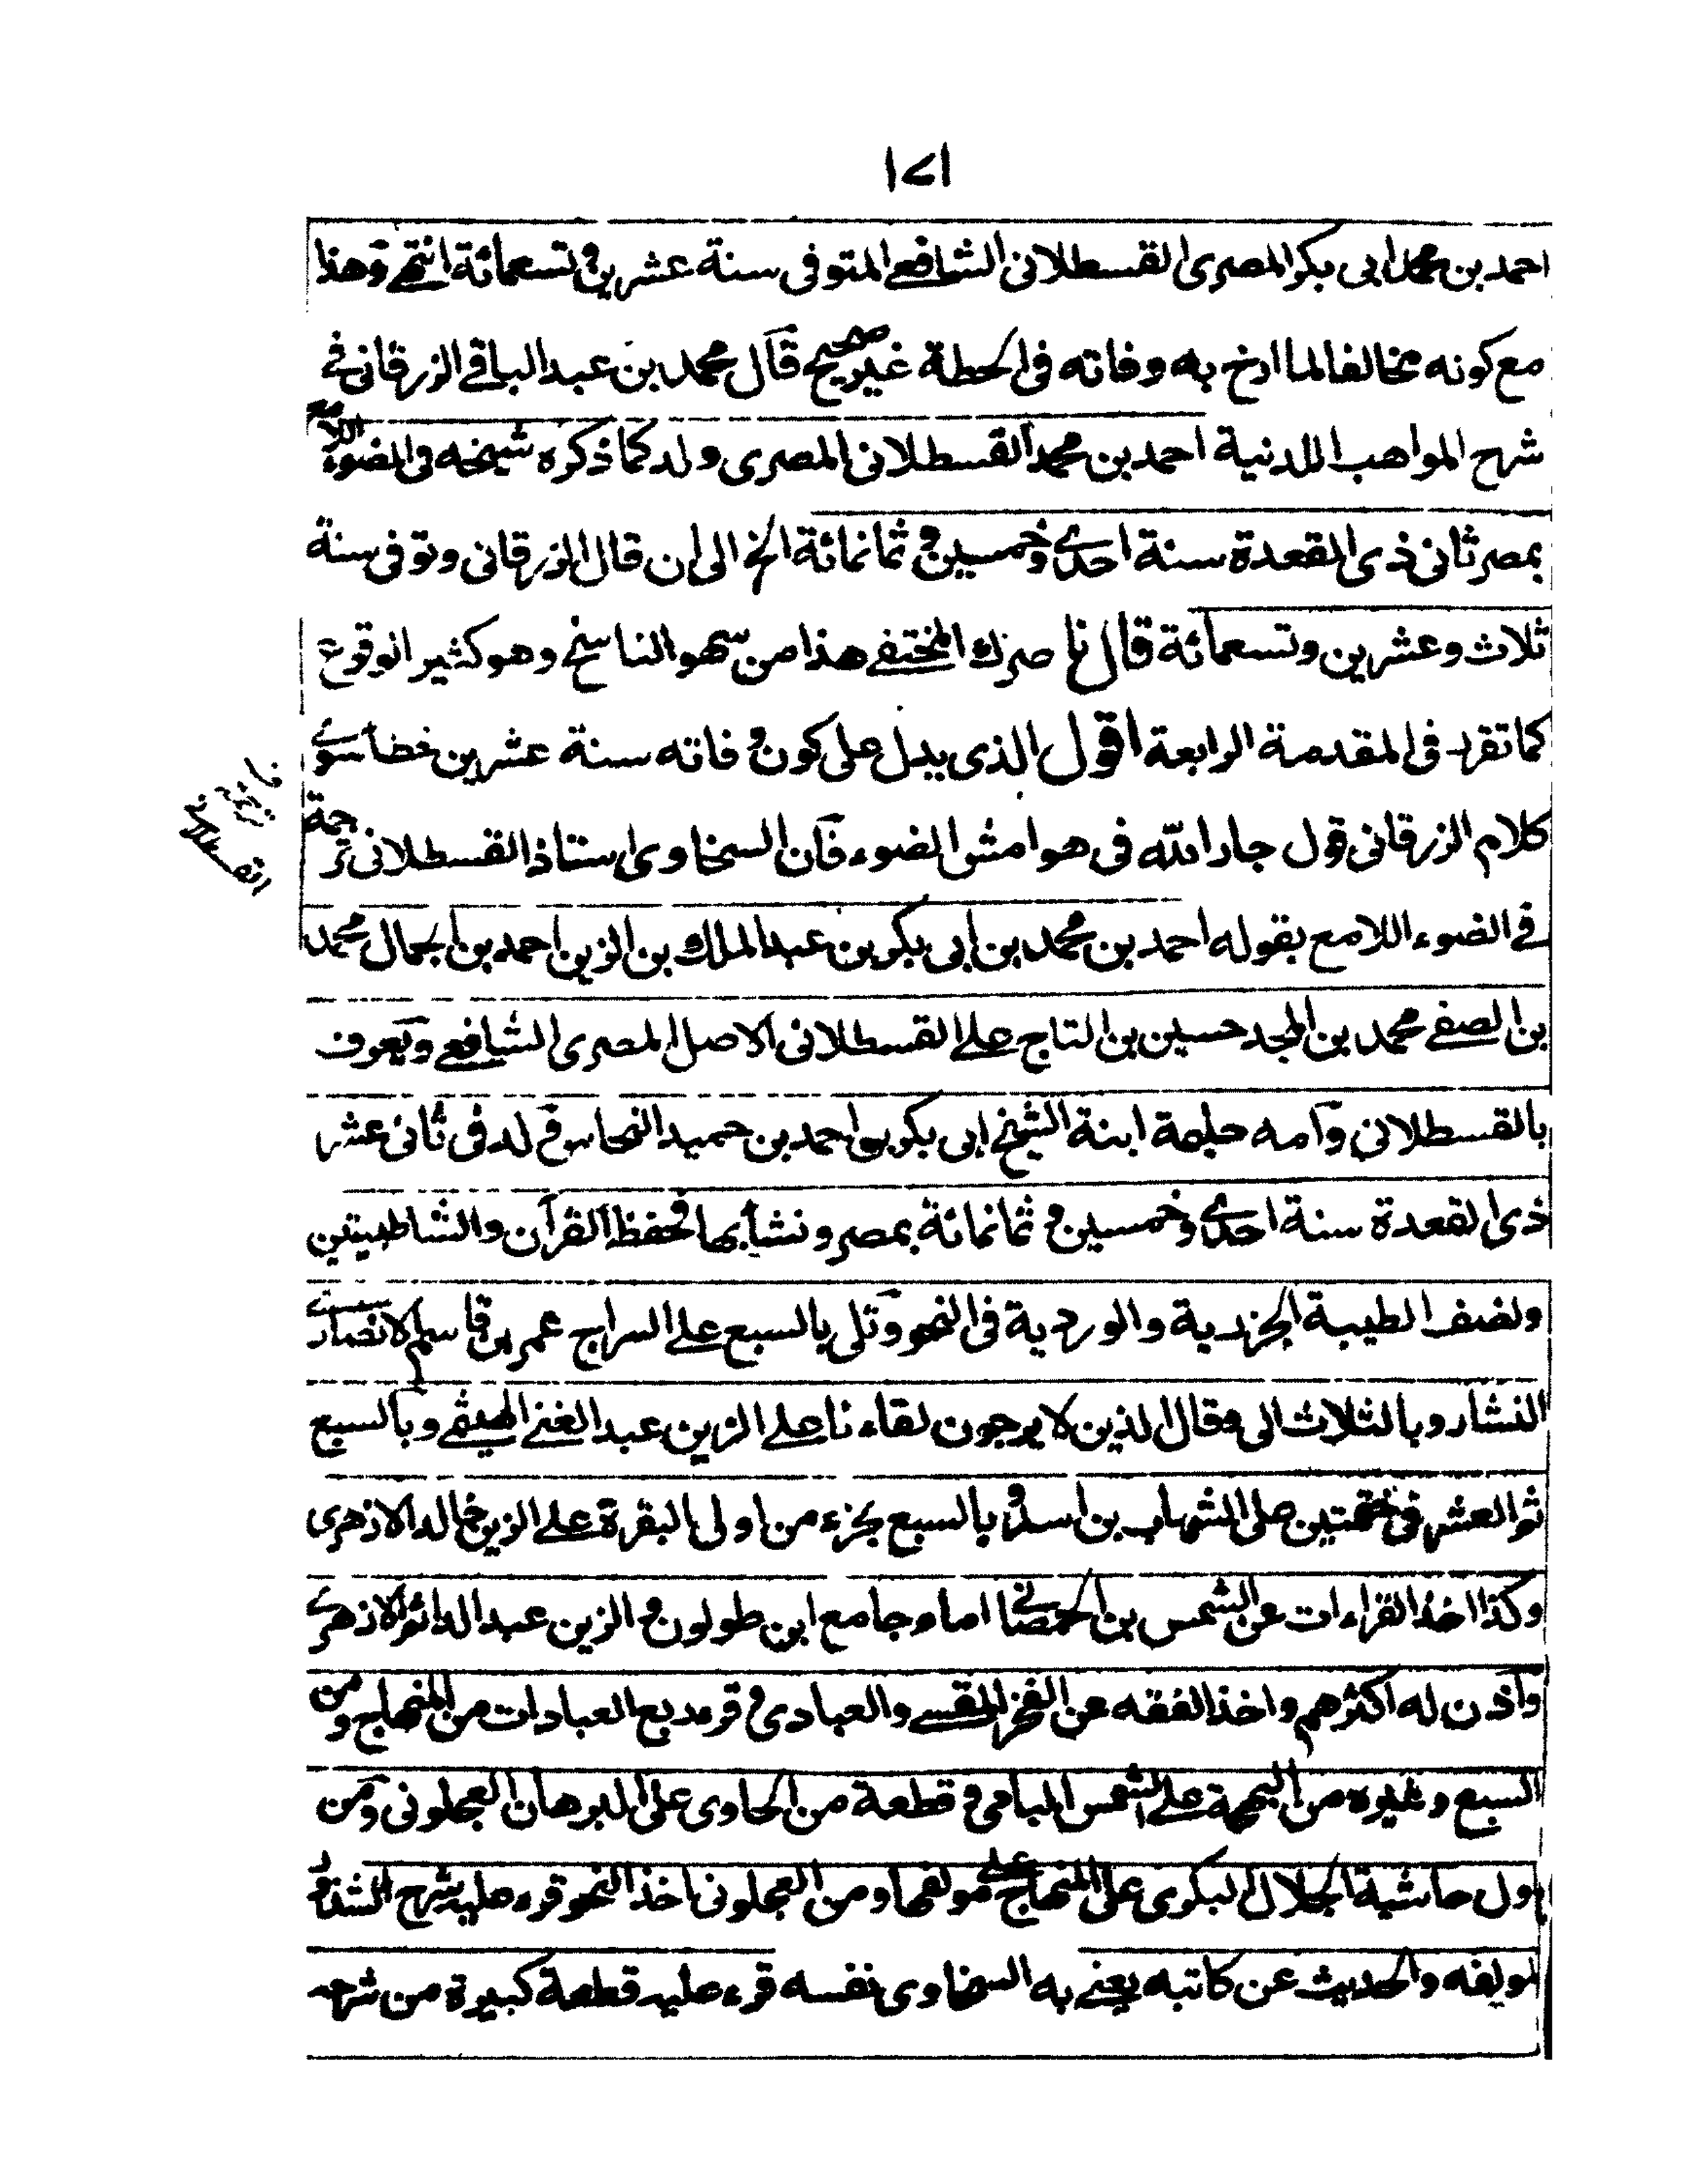 ١٧١
احمد بن محمد ابى بكر المصرى القسطلانى الشافعے المتوفى سنة عشرين و تسعمائة انتهے وهذا
مع كونه مخالفا لما ارخ به وفاته فى الحطة غير صحيح قال محمد بن عبد الباقے الزرقانى فے
شرح المواهب اللدنية احمد بن محمد القسطلانى المصرى ولد كما ذكره شيخه فى الضوء اللامع
بمصر ثانى ذى القعدة سنة احدے وخمسين و ثمانمائة الخ الى ان قال الزرقانى وتوفى سنة
ثلاث وعشرين وتسعمائة قال ناصرك المختفے هذا من سهو الناسخ وهو كثير الوقوع
كما تقرر فى المقدمة الرابعة اقول الذى يدل على كون وفاته سنة عشرين خطأ سوے
كلام الزرقانى قول جار الله فى هوامش الضوء فان السخاوى استاذ القسطلانى ترجمة
فے الضوء اللامع بقوله احمد بن محمد بن ابى بكر بن عبد الملك بن الزين احمد بن الجمال محمد
بن الصفے محمد بن المجد حسين بن التاج علے القسطلانى الاصل المصرى الشافعے ويعرف
بالقسطلانى وامه حليمة ابنة الشيخ ابى بكر بن احمد بن حميد النحاس ولد فى ثانى عشر
ذى القعدة سنة احدے وخمسين و ثمانمائة بمصر ونشأ بها فحفظ القرآن والشاطبيتين
ونصف الطيبة الجزرية والوردية فى النحو وتلى بالسبع علے السراج عمر بن قاسم الانصارے
النشار وبالثلاث الى وقال الذين لا يرجون لقاءنا علے الزين عبد الغنے الهيثمے وبالسبع
ثم العشر فى ختمتين على الشهاب بن اسد و بالسبع بجزء من اولى البقرة علے الزين خالد الازهرى
وكذا اخذ القراءات عن الشمس بن الحمصانے امام جامع ابن طولون و الزين عبد الدائم الازهرے
واذن له اكثرهم واخذ الفقه عن الفخر المقسے والعبادى و قرء ربع العبادات من المنهاج ومن
السبع وغيره من البهجة علے الشمس البامى و قطعة من الحاوى على البرهان العجلونى ومن
اول حاشية الجلال البكرى على المنهاج علے مولفها ومن العجلونى اخذ النحو قرء عليه شرح الشذور
لمولفه والحديث عن كاتبه يعنے به السخاوى نفسه قرء عليه قطعة كبيرة من شرحه
القسطلانے